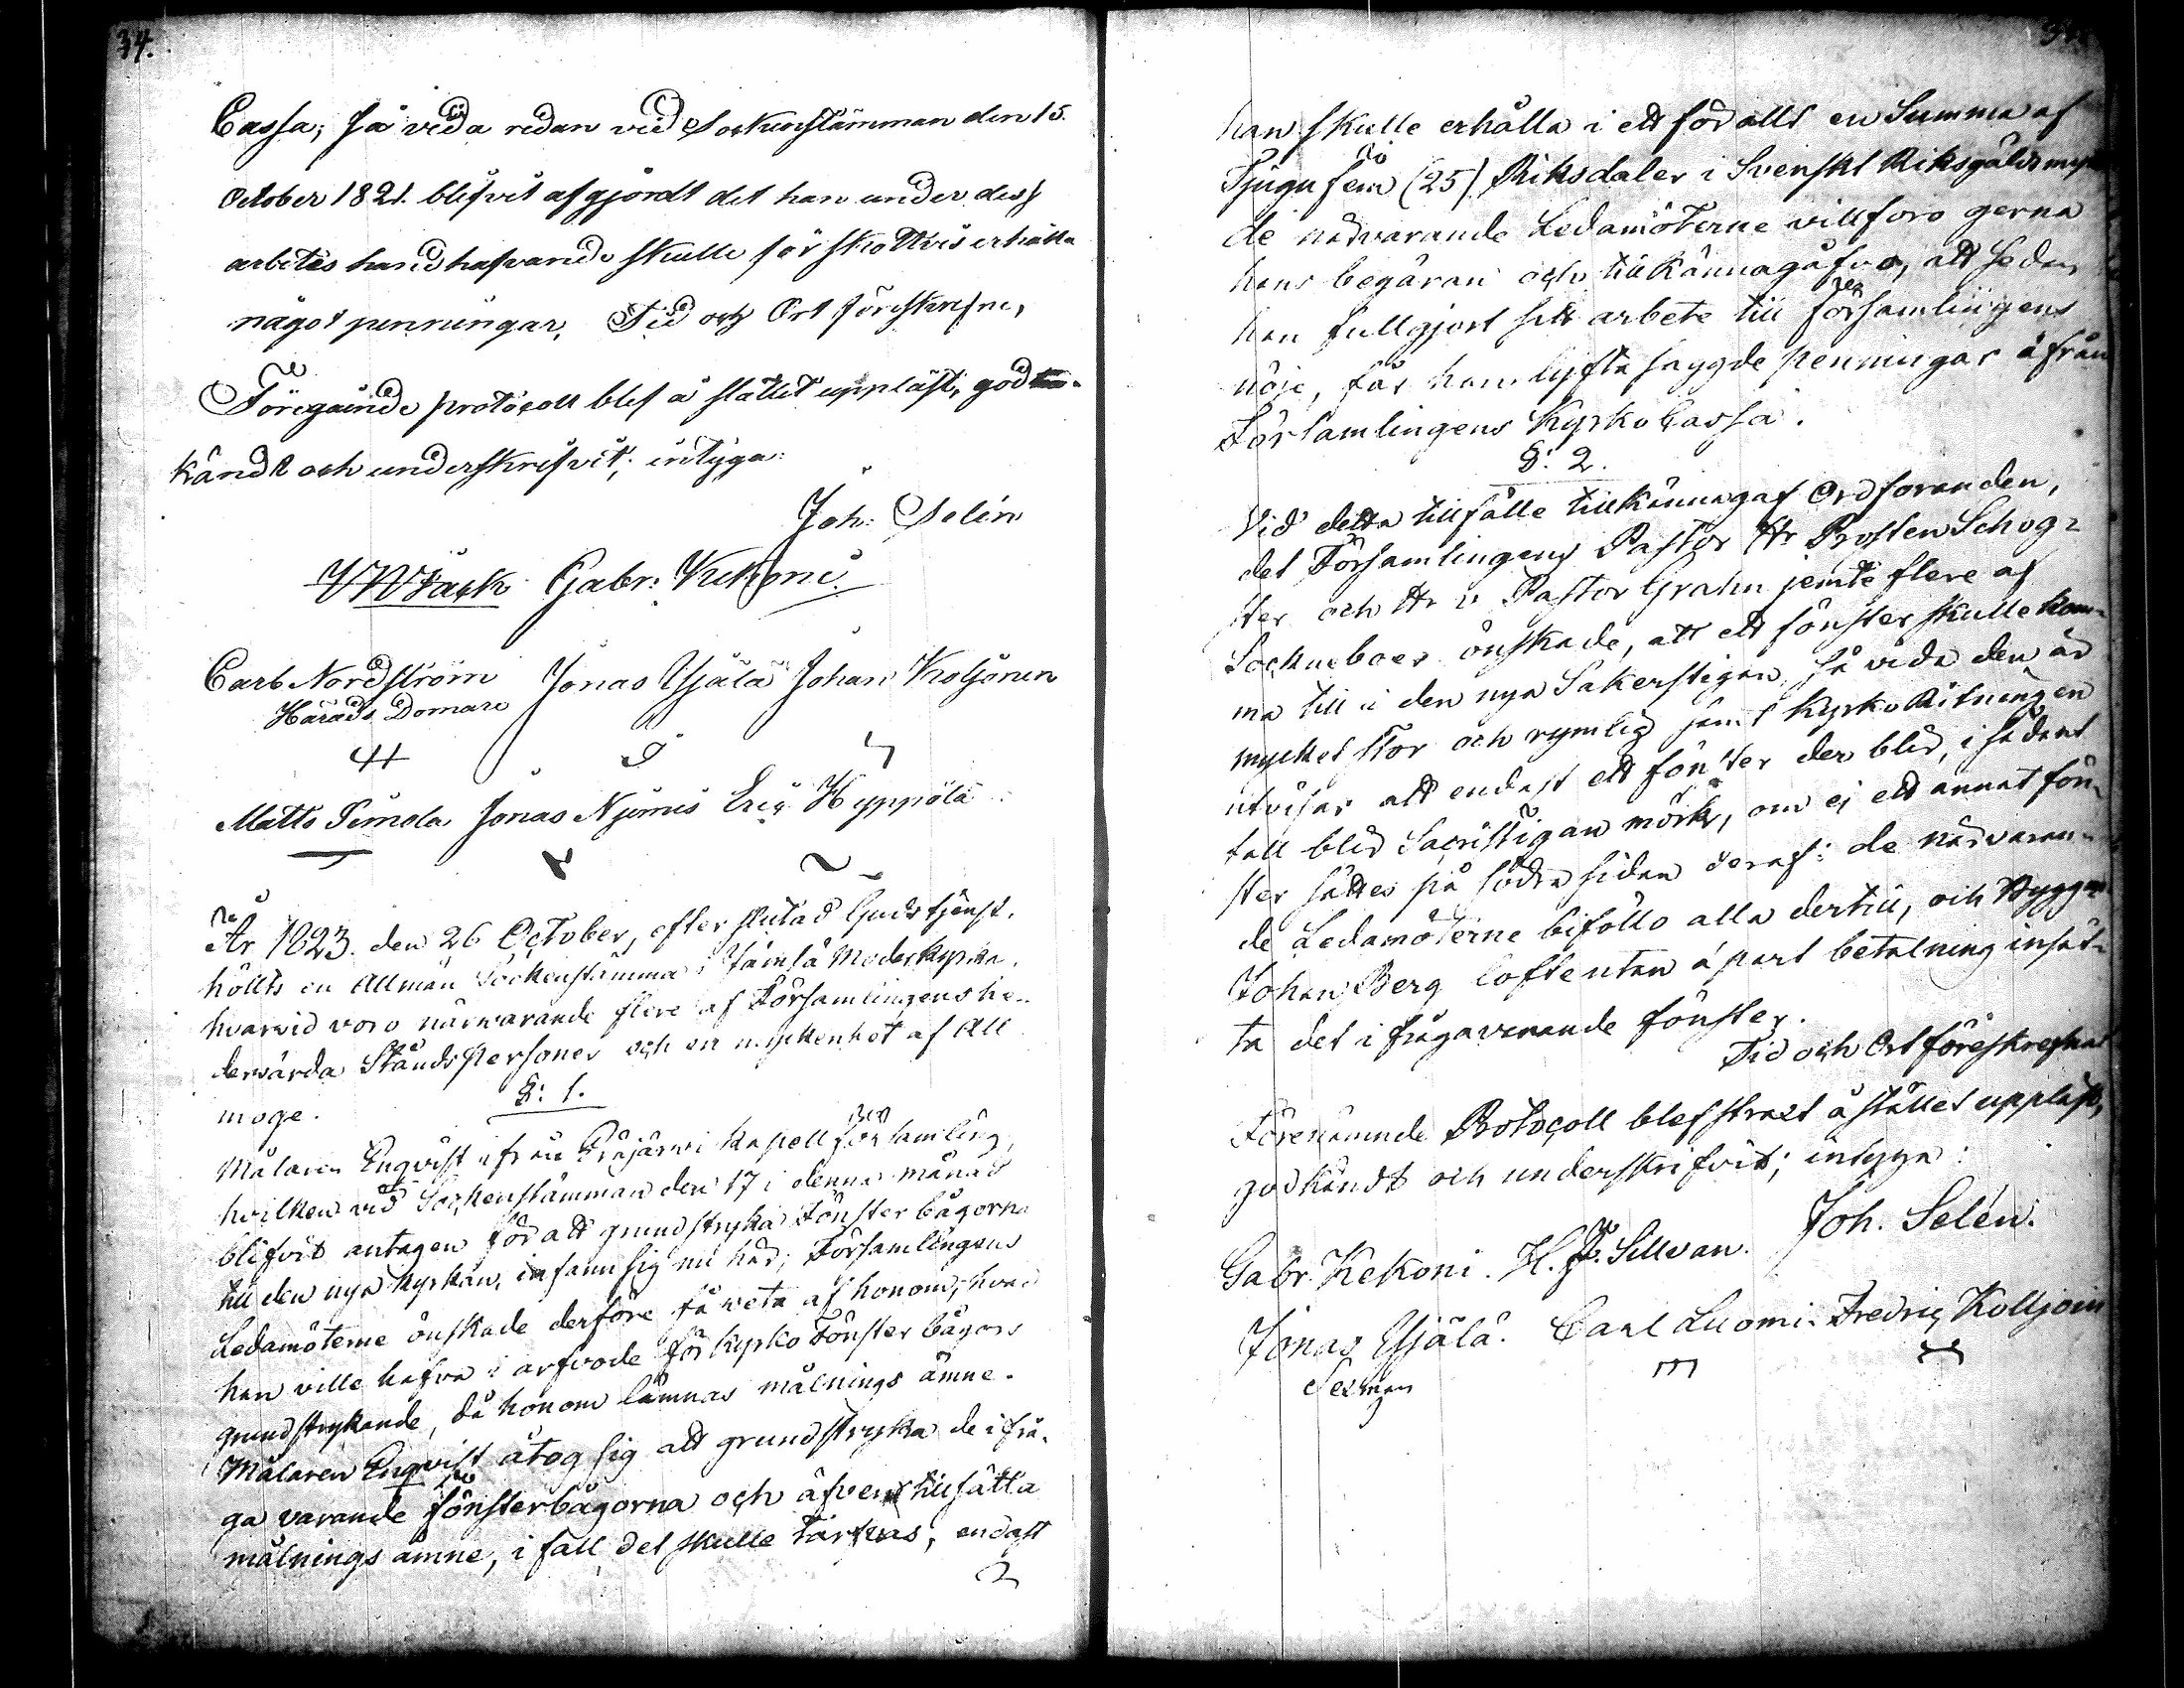 34.
Cassa; så vida redan vid Sockenstämman den 15.
October 1821. blifvit afgjordt det han under dess
arbetes handhafvande skulle förskottvis erhålla
något penningar, Tid och Ort föreskrefne,
Föregående protocoll blef å stället uppläst, godkän-
kändt och underskrifvit; intyga:
Joh: Selin
Gabr: Kekoni
Carl Nordström Jonas Yljälä Johan Koljonen
Härads Domare
Matts Simola Jonas Njemis Eric Hyppölä
År 1823. den 26 October, efter slutad Gudstjenst,
höllts en Allmän Sockenstämma i Jämsä Moderkyrka,
hvarvid voro närwarande flere af Församlingens he-
dervärda Ståndspersoner och en myckenhet af All
moge.
§: 1.
Målaren Enqvist ifrån Eräjärvi Kapell församling,
hvilken vid Sockenstämman den 17 i denna månad
blifvit antagen för att grundstryka Fönster bågorna
till den nya kyrkan, infann sig nu här; Församlingens
Ledamöterne önskade derföre få veta af honom, hvad
han ville hafva i arfvode för kyrko Fönster bågors
grundstrykande, då honom lämnas målnings ämne.
Målaren Enqvist åtog sig att grundstryka de i frå-
ga varande fönsterbågorna och äfven tillsätta
målnings ämne, i fall det skulle tarfvas, endast
han skulle erhålla i ett för allt en Summa af
Tjugu fem (25) Riksdaler i Svenskt Riksgälds mynt
de närvarande Ledamöterne villforo gerna
hans begäran och tillkännagåfvo, att sedan
han fullgjort sitt arbete till församlingens
nöje, får han lyfta sagde penningar ifrån
Församlingens Kyrko Cassa.
§: 2.
Vid detta tillfälle tillkännagaf Ordföranden,
det Församlingens Pastor Hr Prosten Schog-
ster och Hr v Pastor Grahn jemte flere af
Sockneboer önskade, att ett fönster skulle kom-
ma till i den nya Sakerstigan, så vida den är
mycket stor och rymlig samt Kyrko Ritningen
utvisar att endast ett fönster der blir, i sådant
fall blir Sacristigan mörk, om ej ett annat fön-
ster sättes på södra sidan deraf: de närvaran-
de Ledamöterne biföllo alla dertill, och Byggm
Johan Berg lofte utan apart betalning insät-
ta det i fråga varande fönster.
Tid och Ort föreskrefne
Förenämnde Protocoll blef straxt å stället uppläst,
godkändt och underskrifvit; intyga:
Joh. Selén.
Gabr. Kekoni. H. J. Sillvan.
Jonas Yljälä. Carl Luomi. Fredric Kolljoin
Sexman